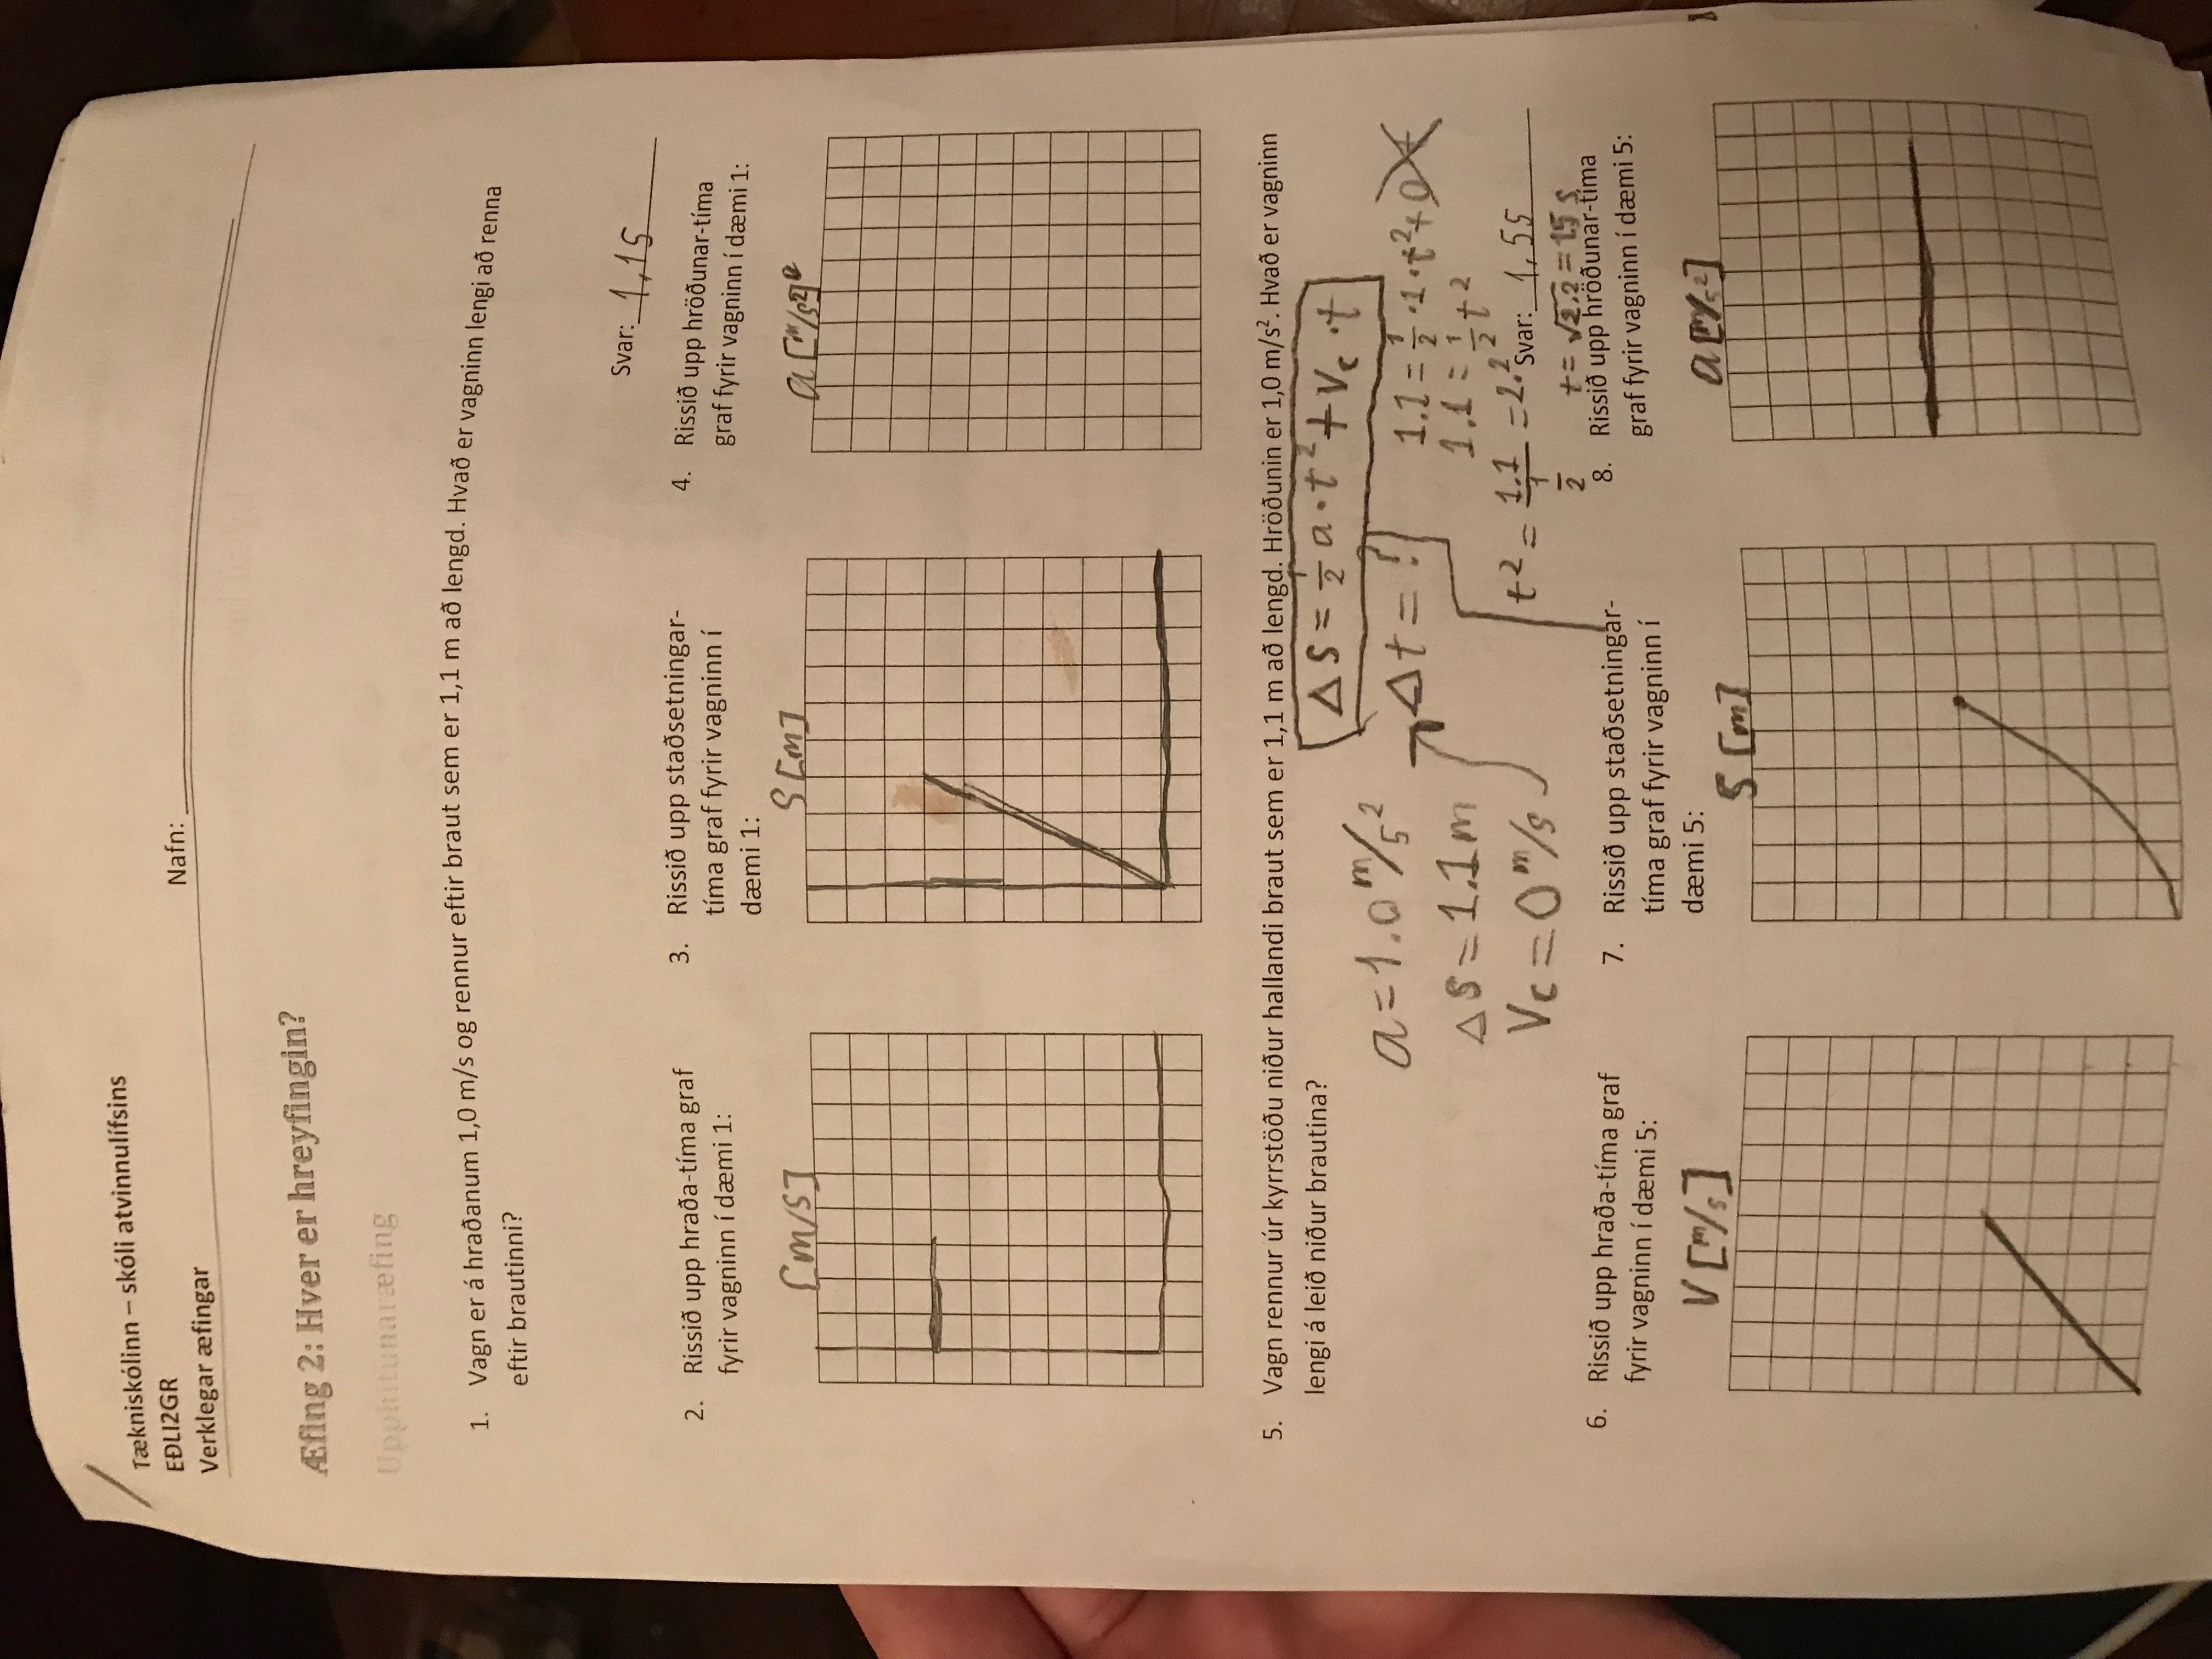 Tækniskólinn – skóli atvinnulífsins
EÐLI2GR
Verklegar æfingar
Nafn:
Æfing 2: Hver er hreyfingin?
Upphitunaræfing
1. Vagn er á hraðanum 1,0 m/s og rennur eftir braut sem er 1,1 m að lengd. Hvað er vagninn lengi að renna
eftir brautinni?
Svar: 1,1s
2. Rissið upp hraða-tíma graf
fyrir vagninn í dæmi 1:
3. Rissið upp staðsetningar-
tíma graf fyrir vagninn í
dæmi 1:
4. Rissið upp hröðunar-tíma
graf fyrir vagninn í dæmi 1:
[m/s]
S [m]
a [m/s²]
5. Vagn rennur úr kyrrstöðu niður hallandi braut sem er 1,1 m að lengd. Hröðunin er 1,0 m/s². Hvað er vagninn
lengi á leið niður brautina?
Δs = 1/2 a · t² + Vc · t
a = 1.0 m/s²
Δt = ?
1.1 = 1/2 · 1 · t² + 0t
Δs = 1.1 m
1.1 = 1/2 t²
Vc = 0 m/s
t² = 1.1 / 1/2 = 2.2
Svar: 1,5s
t = √2.2 = 1.5 s
6. Rissið upp hraða-tíma graf
fyrir vagninn í dæmi 5:
7. Rissið upp staðsetningar-
tíma graf fyrir vagninn í
dæmi 5:
8. Rissið upp hröðunar-tíma
graf fyrir vagninn í dæmi 5:
V [m/s]
S [m]
a [m/s²]